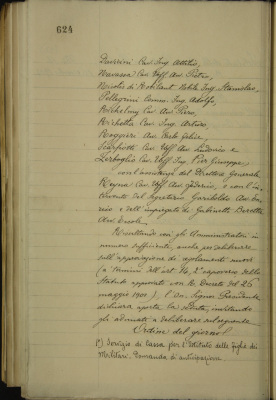 624
Guerrini Cav. Ing. Attilio,
Navassa Cav. Uff. Avv. Pietro,
Nicolis di Robilant Nobile Ing. Stanislao,
Pellegrini Comm. Ing. Adolfo,
Avv. Piero,
Richetta Cav. Ing. Arturo,
Roggieri Avv. Carlo Felice,
Scarfiotti Cav. Uff. Avv. Ludovico e
Zerboglio Cav. Uff. Ing. Pier Giuseppe;
con l'assistenza del Direttore Generale
Cav. Uff. Avv. e coll'in-
tervento del Segretario Garibaldo Avv.
e dell'impiegato di Gabinetto Baretta
Avv.
Risultando con gli Amministratori in
numero sufficiente, anche per deliberare
sull'approvazione di regolamenti nuovi
(a termini dell'art. 14, capoverso dello
Statuto approvato con R. Decreto del 26
maggio 1901), l'On. Signor Presidente
dichiara aperta la seduta, invitando
gli adunati a deliberare sul seguente
Ordine del giorno:
1°) Servizio di cassa per l'Istituto delle figlie dei
Militari. Domanda di anticipazione.